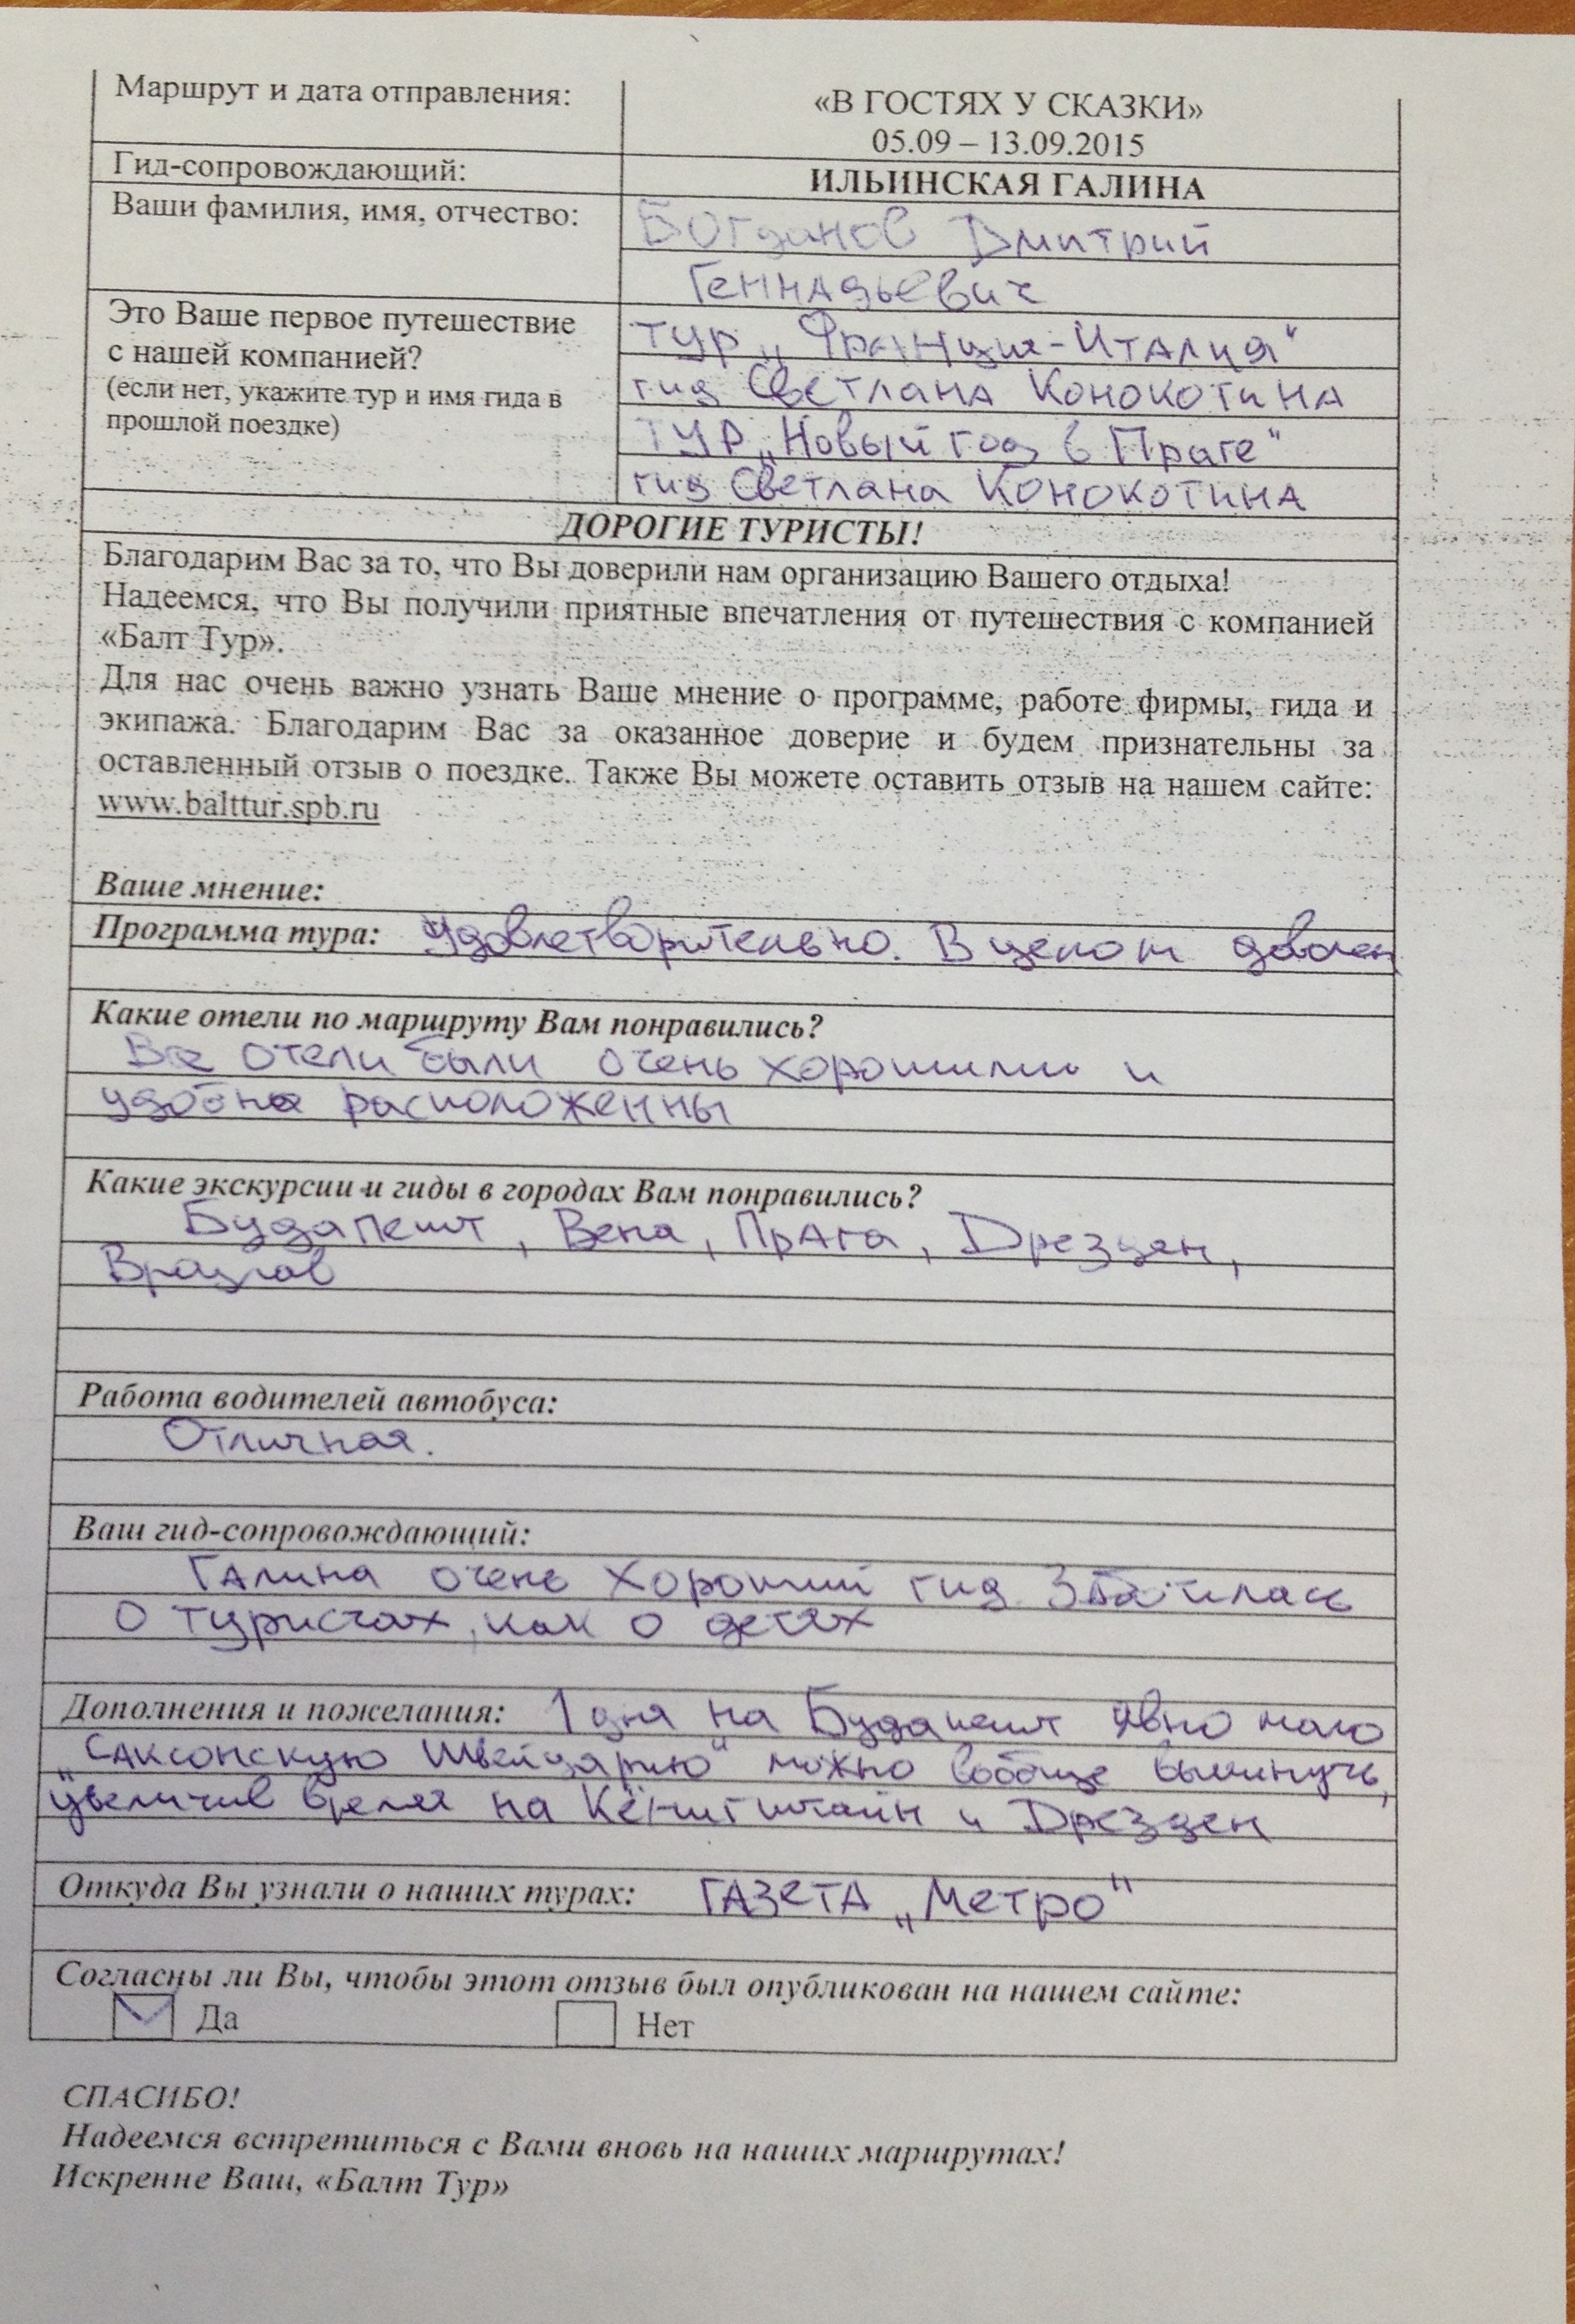 Маршрут и дата отправления:
«В ГОСТЯХ У СКАЗКИ»
05.09 – 13.09.2015
Гид-сопровождающий:
ИЛЬИНСКАЯ ГАЛИНА
Ваши фамилия, имя, отчество:
Богданов Дмитрий
Геннадьевич
Это Ваше первое путешествие
с нашей компанией?
(если нет, укажите тур и имя гида в
прошлой поездке)
тур „Франция-Италия“
гид Светлана Конокотина
тур „Новый год в Праге“
гид Светлана Конокотина
ДОРОГИЕ ТУРИСТЫ!
Благодарим Вас за то, что Вы доверили нам организацию Вашего отдыха!
Надеемся, что Вы получили приятные впечатления от путешествия с компанией
«Балт Тур».
Для нас очень важно узнать Ваше мнение о программе, работе фирмы, гида и
экипажа. Благодарим Вас за оказанное доверие и будем признательны за
оставленный отзыв о поездке. Также Вы можете оставить отзыв на нашем сайте:
www.balttur.spb.ru
Ваше мнение:
Программа тура: Удовлетворительно. В целом доволен
Какие отели по маршруту Вам понравились?
Все отели были очень хорошими и
удобно расположенны
Какие экскурсии и гиды в городах Вам понравились?
Будапешт, Вена, Прага, Дрезден,
Вроцлав
Работа водителей автобуса:
Отличная.
Ваш гид-сопровождающий:
Галина очень хороший гид. Заботилась
о туристах, как о детях
Дополнения и пожелания: 1 дня на Будапешт явно мало
„Саксонскую Швейцарию“ можно вообще выкинуть,
увеличив время на Кёнигштайн и Дрезден
Откуда Вы узнали о наших турах: ГАЗЕТА „Метро“
Согласны ли Вы, чтобы этот отзыв был опубликован на нашем сайте:
Да Нет
СПАСИБО!
Надеемся встретиться с Вами вновь на наших маршрутах!
Искренне Ваш, «Балт Тур»